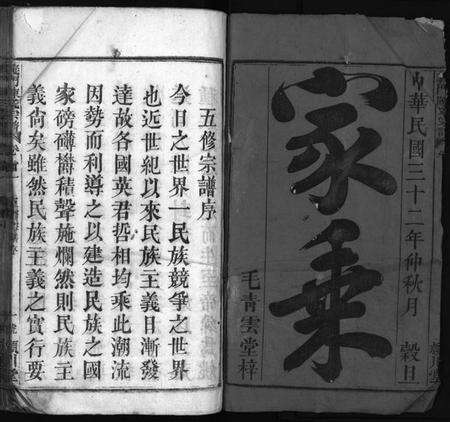 中華民國三十二年仲秋月 穀旦
家乘
毛青雲堂梓
五修宗譜序
今日之世界一民族競爭之世界
也近世紀以來民族主義日漸發
達故各國英君哲相均乘此潮流
因勢而利導之以建造民族之國
家磅礴欝積聲施爛然則民族主
義尚矣雖然民族主義之實行要